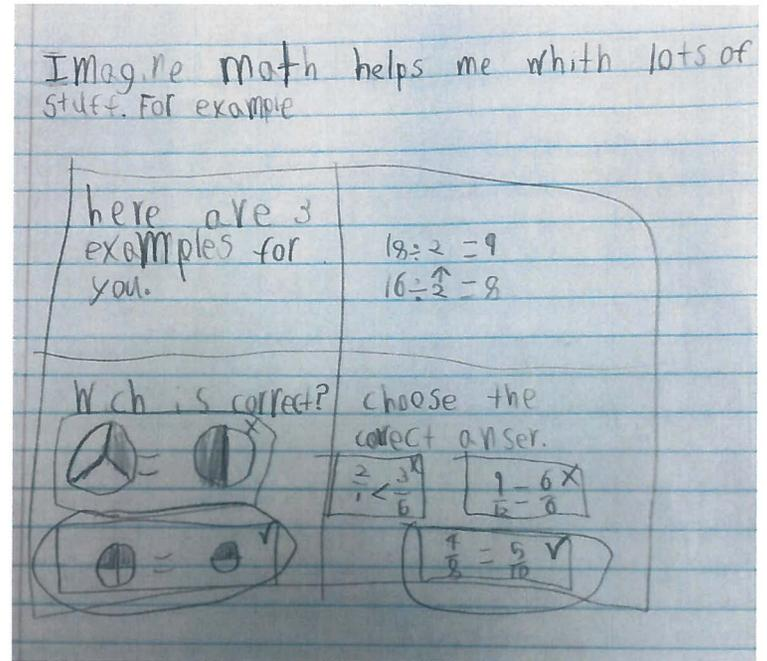 Imagine math helps me whith lots of
stuff. For example
here are 3
examples for
you.
18÷2=9
16÷2=8
Wich is correct?
=
x
=
✓
choose the
corect anser.
2/1 < 3/6 x
1/12 = 6/6 x
4/8 = 5/10 ✓